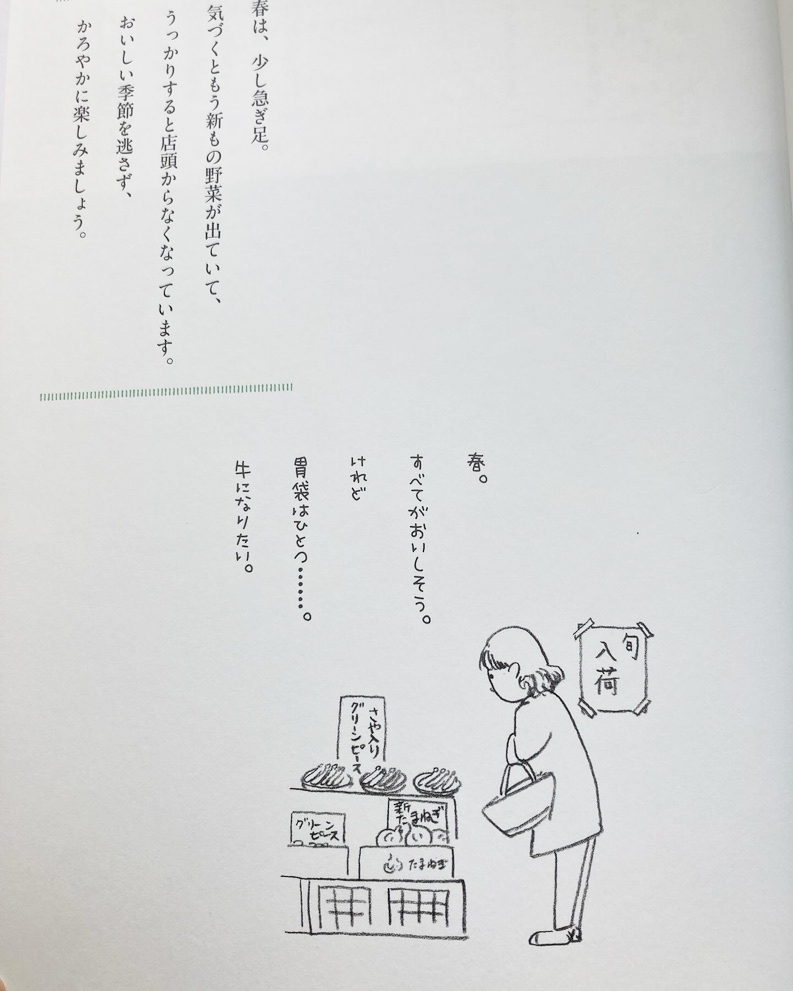 春は、少し急ぎ足。
気づくともう新もの野菜が出ていて、
うっかりすると店頭からなくなっています。
おいしい季節を逃さず、
かろやかに楽しみましょう。
春。
すべてがおいしそう。
けれど
胃袋はひとつ……。
牛になりたい。
旬
入荷
さや入り
グリーンピース
新
たまねぎ
グリーン
ピース
たまねぎ